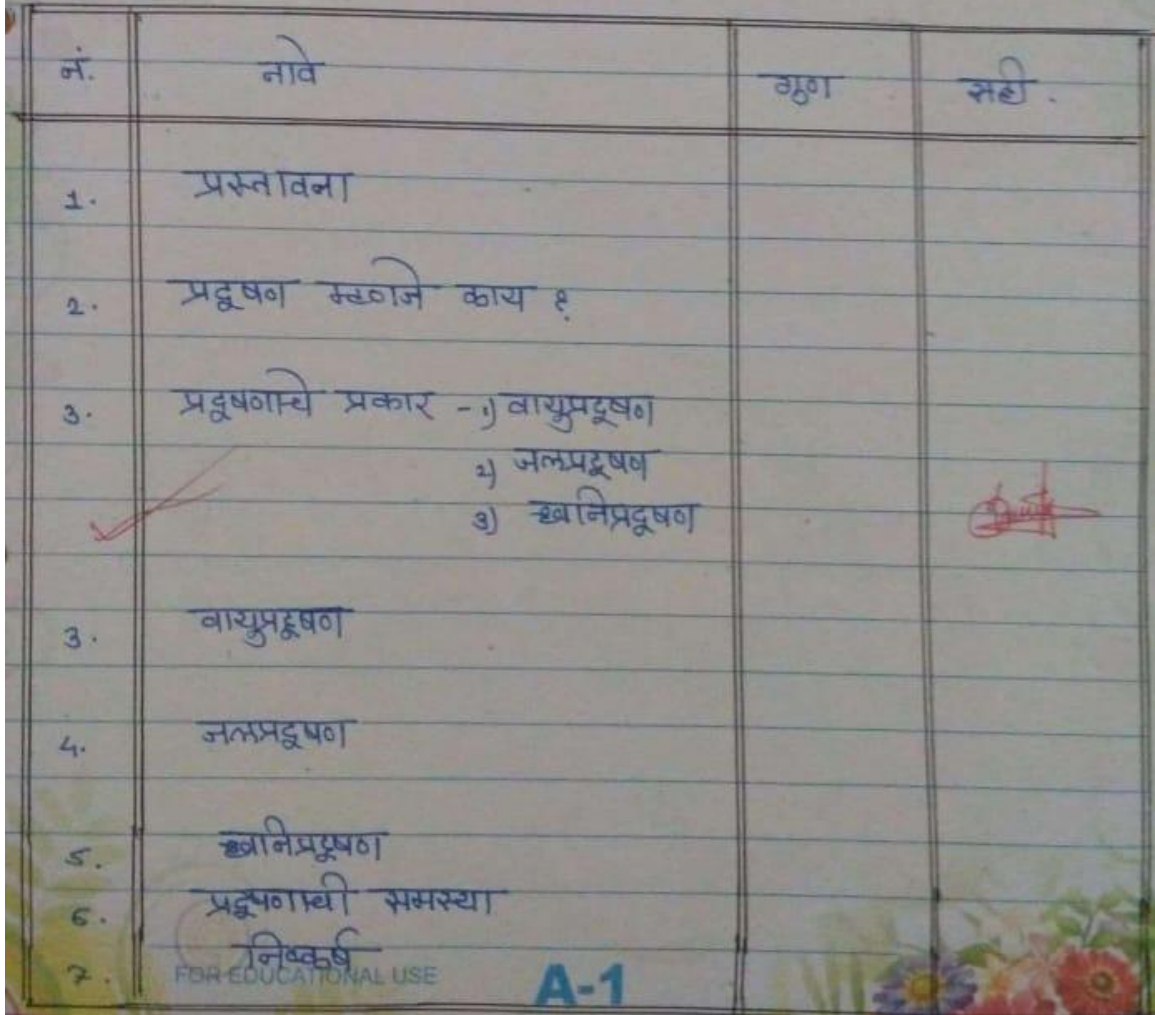 नं. नावे गुण सही.
1. प्रस्तावना
2. प्रदूषण म्हणजे काय ?
3. प्रदूषणाचे प्रकार - १) वायुप्रदूषण
२) जलप्रदूषण
३) ध्वनिप्रदूषण
3. वायुप्रदूषण
4. जलप्रदूषण
5. ध्वनिप्रदूषण
6. प्रदूषणाची समस्या
7. निष्कर्ष
FOR EDUCATIONAL USE A-1